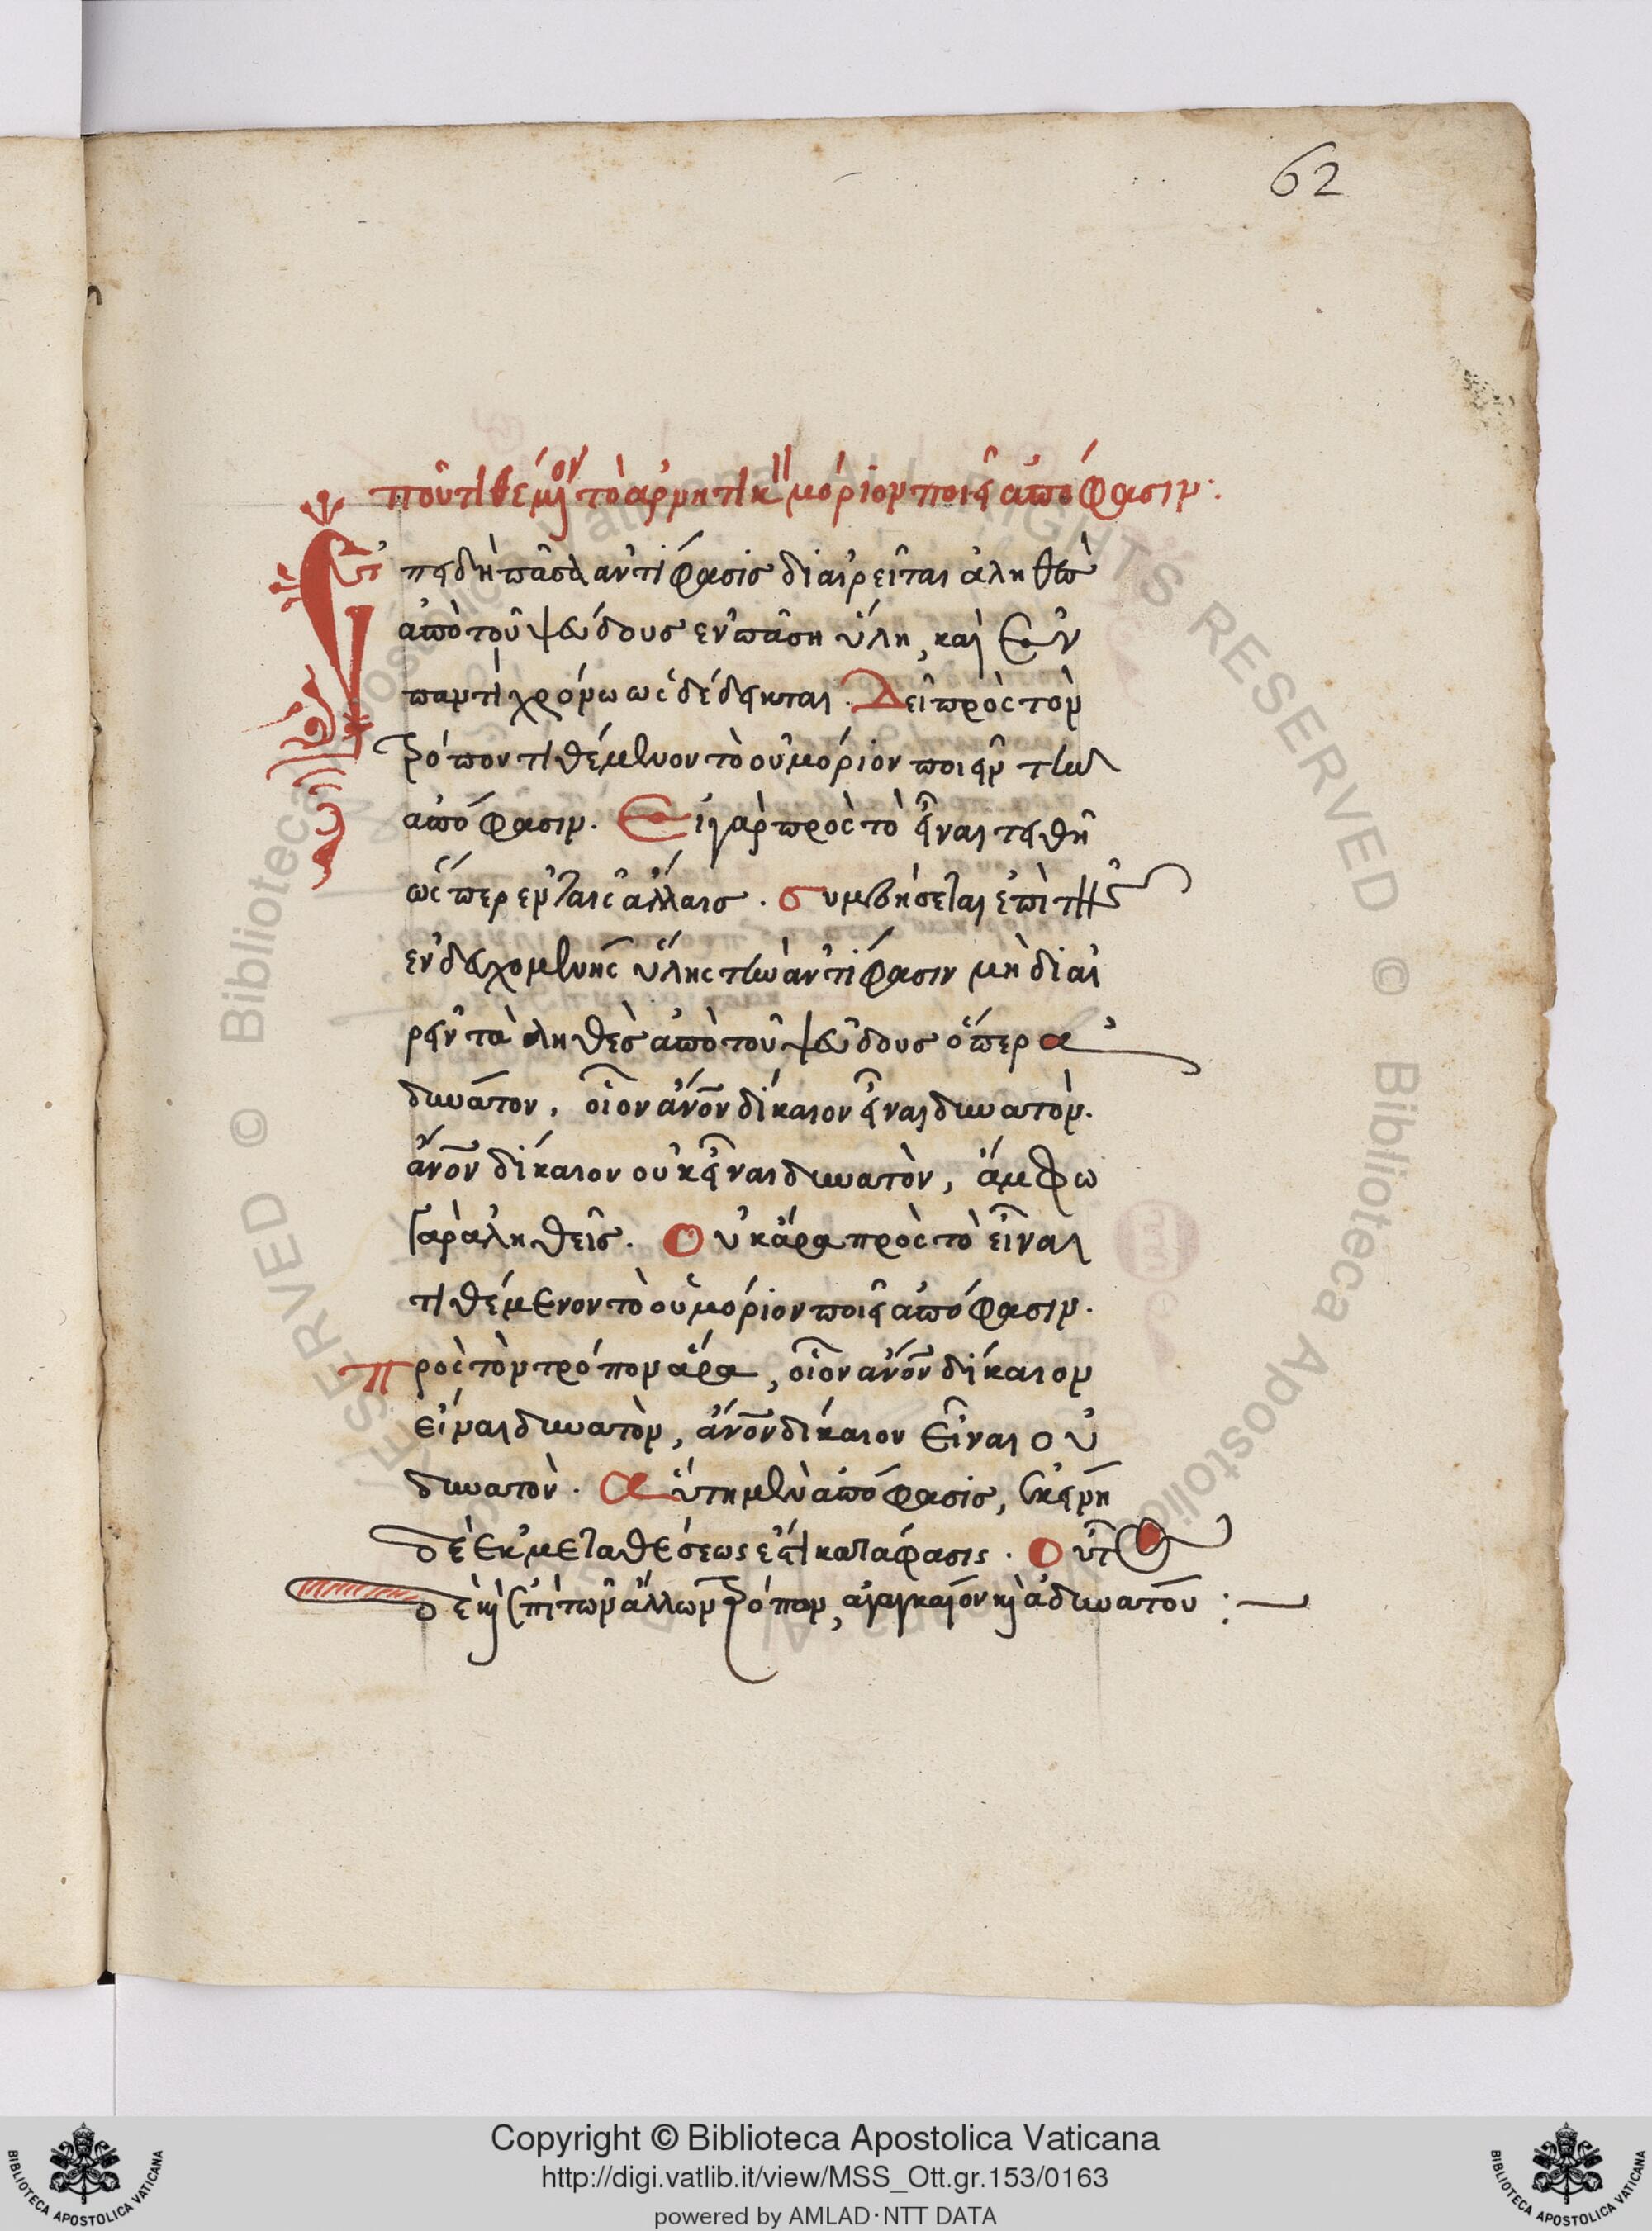 62
ποῦ τιθέμενον τὸ ἀρνητικὸν μόριον ποιεῖ ἀπόφασιν:
Ἐπειδὴ πᾶσα ἀντίφασις διαιρεῖται ἀληθῶς
ἀπὸ τοῦ ψεύδους ἐν πάση ὕλη, καὶ ἐν
παντὶ χρόνω ὡς δέδεικται. Δεῖ πρὸς τὸν
τρόπον τιθέμενον τὸ οὐ μόριον ποιεῖν τὴν
ἀπόφασιν. Εἰ γὰρ πρὸς τὸ εἶναι τεθῆ
ὥσπερ ἐν ταῖς ἄλλαις. συμβήσεται ἐπὶ τῆς
ἐνδεχομένης ὕλης τὴν ἀντίφασιν μὴ διαι
ρεῖν τἀληθὲς ἀπὸ τοῦ ψεύδους ὅπερ ἀ
δύνατον, οἷον ἄνον δίκαιον εἶναι δυνατὸν.
ἄνον δίκαιον οὐκ εἶναι δυνατὸν, ἄμφω
γὰρ ἀληθεῖς. Οὐκ ἄρα πρὸς τὸ εἶναι
τιθέμενον τὸ οὐ μόριον ποιεῖ ἀπόφασιν.
πρὸς τὸν τρόπον ἄρα, οἷον ἄνον δίκαιον
εἶναι δυνατὸν, ἄνον δίκαιον εἶναι οὐ
δυνατὸν. Αὕτη μὲν ἀπόφασις, ἐκείνη
δὲ ἐκ μεταθέσεως ἐστὶ κατάφασις. Οὕτω
δὲ καὶ ἐπὶ τῶν ἄλλων τρόπων, ἀναγκαῖον καὶ ἀδυνάτου:
Copyright © Biblioteca Apostolica Vaticana
http://digi.vatlib.it/view/MSS_Ott.gr.153/0163
powered by AMLAD·NTT DATA
BIBLIOTECA APOSTOLICA VATICANA
BIBLIOTECA APOSTOLICA VATICANA